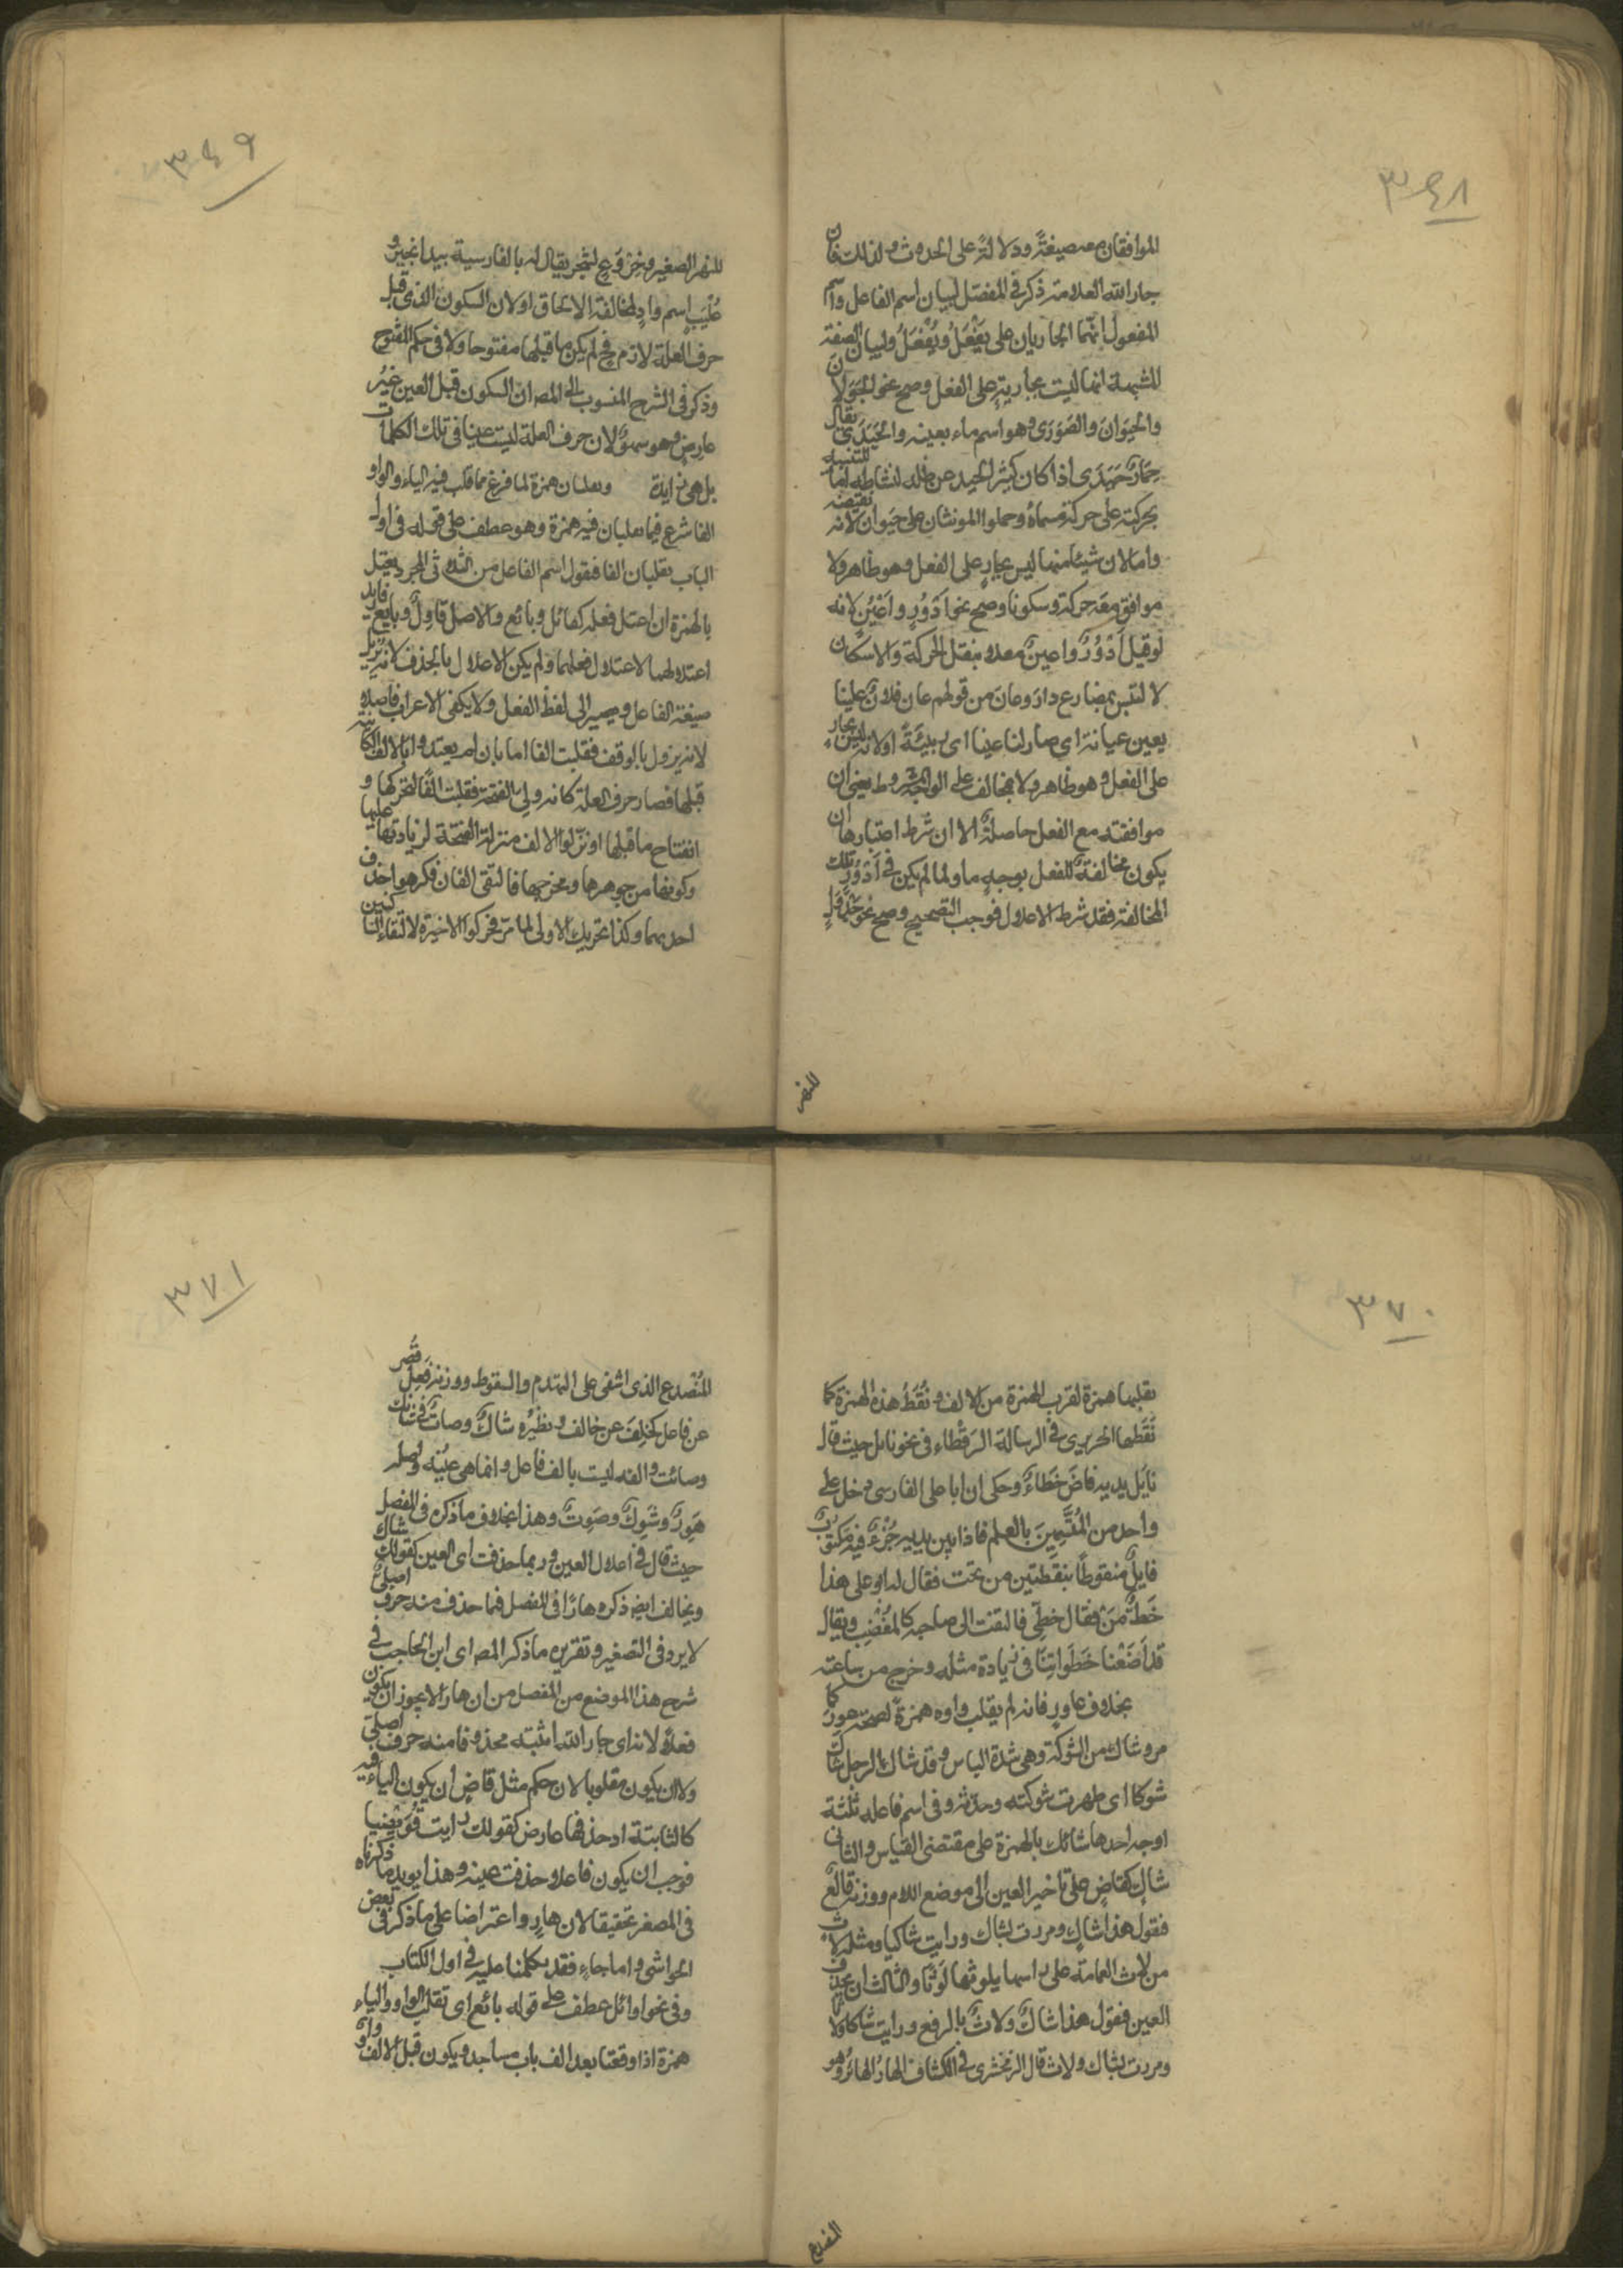 ٣٤٨
الموافقان معه صيغةً ودلالةً على الحدوث ولذلك فان
جار الله العلامة ذكر فى المفصّل لبيان اسم الفاعل واسم
المفعول انّهما الجاريان على يَفْعَلُ ويُفْعَلُ ولبيان الصفة
المشبهة انها ليست بجارية على الفعل وصح نحو الجَوَلانَ
والحيَوانَ والصَوَرَى وهو اسم ماء بعينه والحَيَدَى يقال
حِمَارٌ حَيَدَى اذا كان كثير الحيد عن ظله لنشاطه اما للتنبيه
بحركته على حركة مسماه وحملوا الموتان على حَيَوان لانه نقيضه
واما لان شيئا منهما ليس بجارٍ على الفعل وهو ظاهر ولا
موافق معَه حركة وسكونا وصح نحو اَدْوُرٍ واَعْيُنٍ لانه
لو قيل اَدُوْرٌ واعينٌ معلا بنقل الحركة والاسكان
لا لتبس بمضارع دارَ وعانَ من قولهم عان فلانٌ علينا
يعين عيانة اى صار لنا عينا اى ربيئةً اولانه ليس بجارٍ
على الفعل وهو ظاهر ولا مخالف على الوجه المشروط يعنى ان
موافقته مع الفعل حاصلةٌ الا ان شرط اعتبارها ان
يكون مخالفةٌ للفعل بوجهٍ ما ولما لم يكن فى اَدْوُرٍ تلك
المخالفة فقد شرط الاعلال فوجب التصحيح وصح نحو جَدْوَلٍ
للنهر
٣٤٩
للنهر الصغير وخِرْوَعٍ لشجر يقال له بالفارسية بيد انجير و
عُلْيَبٍ اسم وادٍ لمخالفة الالحاق اولان السكون الذى قبل
حرف العلة لازم فح لم يكن ما قبلها مفتوحا ولا فى حكم المفتوح
وذكر فى الشرح المنسوب الى المص ان السكون قبل العين غيرُ
عارِضٍ وهو سهوٌ لان حرف العلة ليست عينا فى تلك الكلمات
بل هى زايدة وتقلبان همزة لما فرغ مما قلب فيه الياء والواو
الفا شرع فيما تقلبان فيه همزة وهو عطف على قوله فى اول
الباب تقلبان الفا فنقول اسم الفاعل من الثلاثى المجرد يعتل
بالهمزة ان اعتل فعله كقائل وبائع والاصل قاوِلٌ وبايعٌ فاريد
اعتلالهما لاعتلال فعلهما ولم يكن الاعلال بالحذف لانه يزيل
صيغة الفاعل ويصير الى لفظ الفعل ولا يكفى الاعراب فاصلا
لانه يزول بالوقف فقلبت الفا اما بان لم يعتد بالالف الكائنة
قبلها فصار حرف العلة كانه ولى الفتحة فقلبت الفًا لتحركها و
انفتاح ما قبلها او نزّلوا الالف منزلة الفتحة لزيادتها عليها
وكونها من جوهرها ومخرجها فالتقى الفان فكرهوا حذف
احديهما وكذا تحريك الاولى لما مرّ فحركوا الاخيرة لالتقاء الساكنين
٣٧٠
بقلبها همزة لقرب الهمزة من الالف ونُقَطُ هذه الهمزة كما
نَقَطها الحريرى فى الرسالة الرَقْطاء فى نحو نايل حيث قال
نايَل يديه فاضَ خَطَاءٌ وحكى ان ابا على الفارسى دخل على
واحد من المُتَسِّمِينَ بالعلم فاذا بين يديه جُزْءٌ فيه مكتوبٌ
قايلٌ منقوطًا بنقطتين من تحت فقال له ابو على هذا
خَطُّ مَنْ فقال خطِّى فالتفت الى صاحبه كالمُغْضِب ويقال
قد اَضَعْنا خَطَواتِنَا فى زيادة مثله وخرج من ساعته
بخلاف عاوِرٍ فانه لم يقلب واوه همزةً لصحة عور كما
مر وشاك من الشوكة وهى شدة الباس وقد شاك الرجل يشاك
شوكا اى ظهرت شوكته وحدّته وفى اسم فاعله ثلثة
اوجه احدها شائك بالهمزة على مقتضى القياس والثانى
شاكٍ كقاضٍ على تاخير العين الى موضع اللام ووزنه فالع
فنقول هذا شاكٍ ومررت بشاك ورايت شاكيا ومثله لاثٍ
من لاث العمامة على راسها يلوثها لَوْثًا والثالث ان يحذف
العين فنقول هذا شاكٌ ولاثٌ بالرفع ورايت شاكا ولاثا
ومررت بشاك ولاث قال الزمخشرى فى الكشاف الهارُ الهائر وهو
المنصدع
٣٧١
المُنْصَدع الذى اشفى على التهدم والسقوط ووزنه فَعِلٌ قُصر
عن فاعل كخلِفَ عن خالف ونظيره شاكٌ وصاتٌ فى شائك
وصائت والفه ليست بالف فاعل وانما هى عيْنُه واصله
هَوِرٌ وشَوِكٌ وصَوِتٌ وهذا بخلاف ما ذكره فى المفصل
حيث قال فى اعلال العين وربما حذفت اى العين كقولك شاك
ويخالف ايض ذكره هارًا فى المفصل فيما حذف منه حرف اصلى
لا يرد فى التصغير وتقرير ما ذكر المص اى ابن الحاجب فى
شرح هذا الموضع من المفصل من ان هارا لا يجوز ان يكون
فعلا لانه اى جار الله اثبته محذوفا منه حرف اصلى
ولا ان يكون مقلوبا لان حكم مثل قاضٍ ان يكون الياء فيه
كالثابتة اذ حذفها عارض كقولك رايت قُوَيْضيا
فوجب ان يكون فاعلا وحذفت عينه وهذا يويد ما ذكرناه
فى المصغر تحقيقا لان هارٍ واعتراضا على ما ذكر فى بعض
الحواشى واما جاءٍ فقد تكلمنا عليه فى اول الكتاب
وفى نحو اوائل عطف على قوله بائع اى تقلب الواو والياء
همزة اذا وقعتا بعد الف باب مساجد ويكون قبل الالف واو